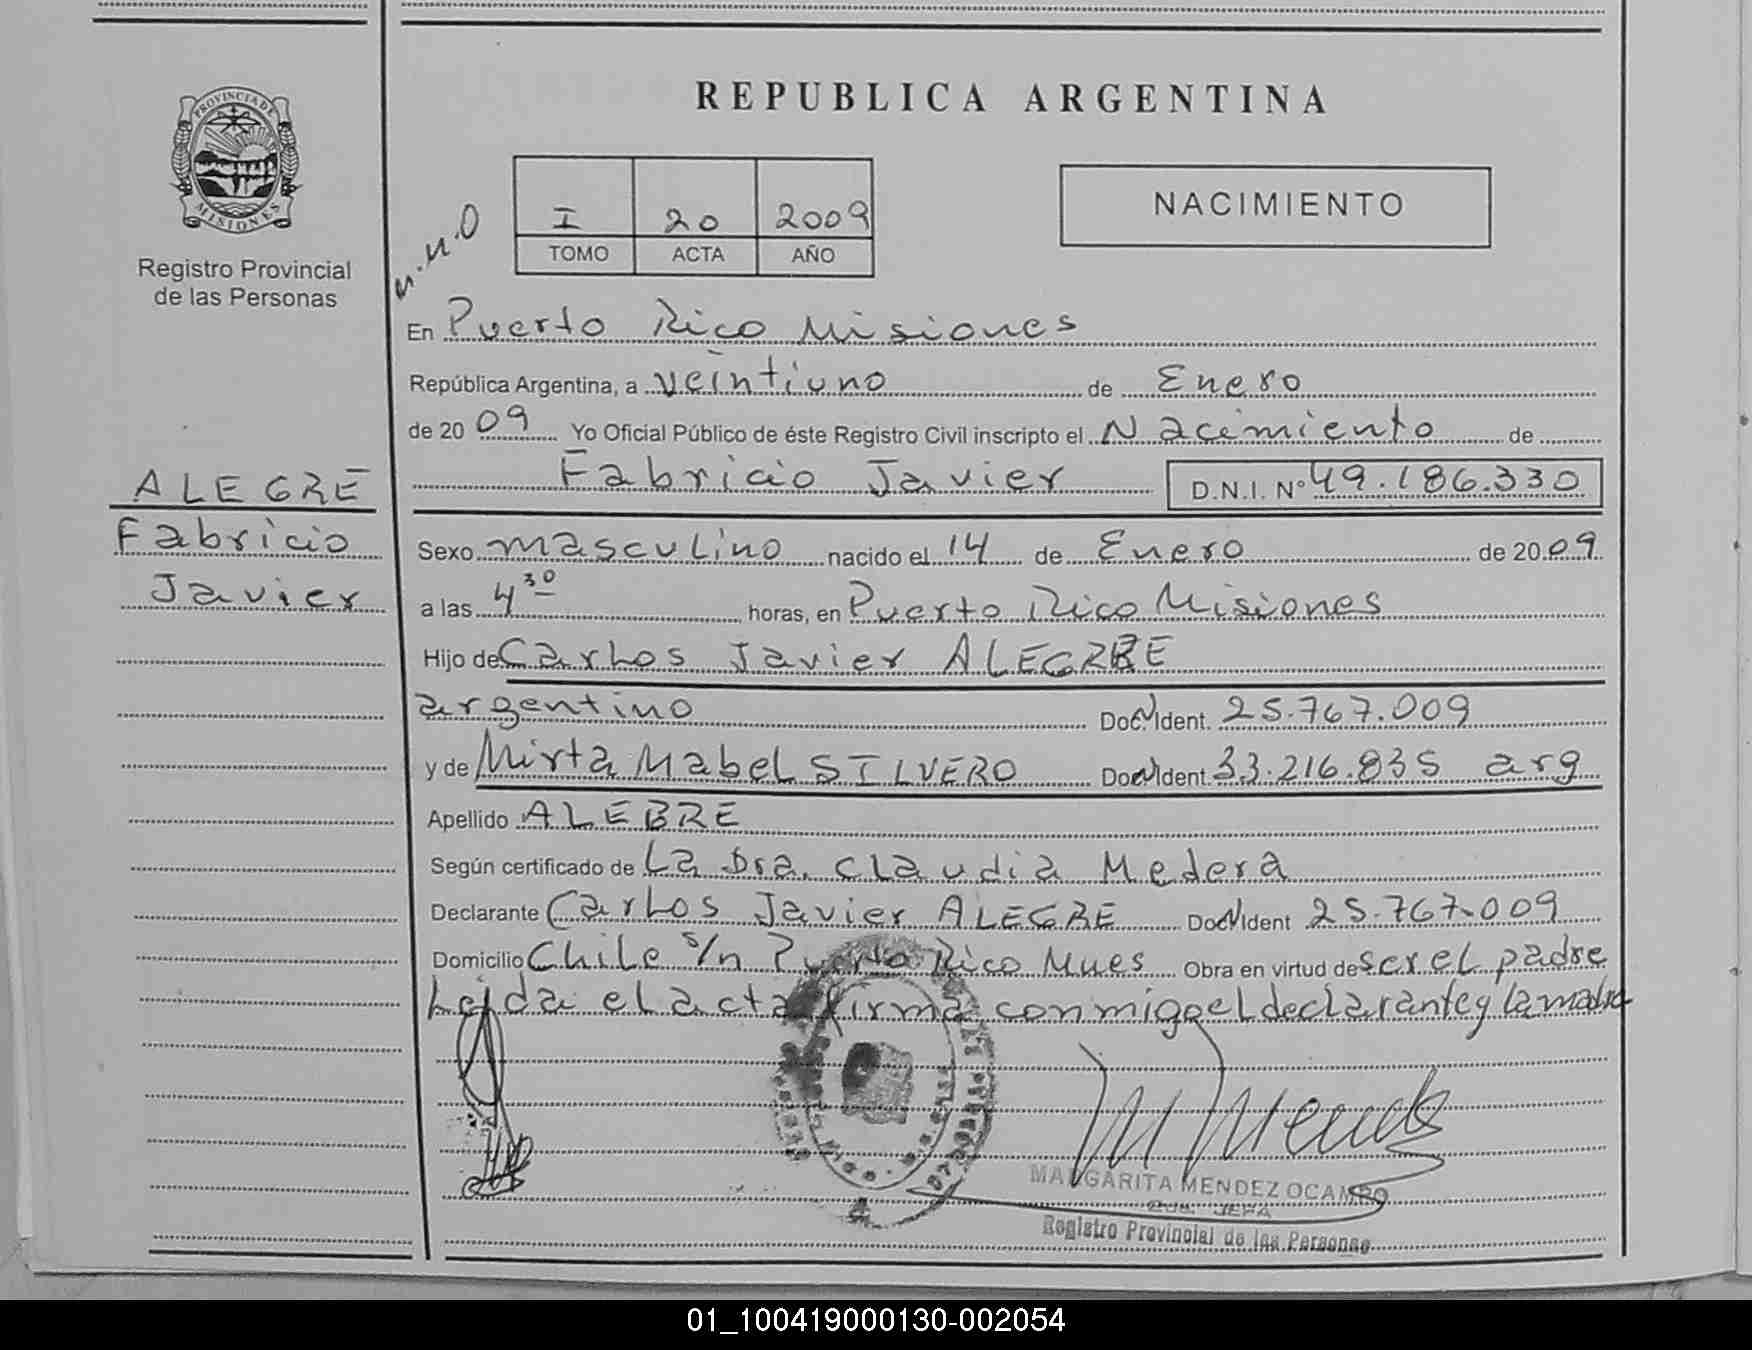 REPUBLICA ARGENTINA
PROVINCIA DE
MISIONES
Registro Provincial
de las Personas
n.n.o
I 20 2009
TOMO ACTA AÑO
NACIMIENTO
En Puerto Rico Misiones
República Argentina, a veintiuno de Enero
de 20 09 Yo Oficial Público de éste Registro Civil inscripto el Nacimiento de
Fabricio Javier D.N.I. Nº 49.186.330
ALEGRE
Fabricio
Javier
Sexo masculino nacido el 14 de Enero de 2009
a las 4 30 horas, en Puerto Rico Misiones
Hijo de Carlos Javier ALEGRE
argentino Doc. Ident. 25.767.009
y de Mirta Mabel SILVERO Doc. Ident. 33.216.835 arg
Apellido ALEBRE
Según certificado de La Dra. Claudia Medera
Declarante Carlos Javier ALEGRE Doc. Ident 25.767.009
Domicilio Chile s/n Puerto Rico Mnes Obra en virtud de ser el padre
Leida el acta firma conmigo el declarante y la madre
MARGARITA MENDEZ OCAMPO
JEFA
Registro Provincial de las Personas
01_100419000130-002054